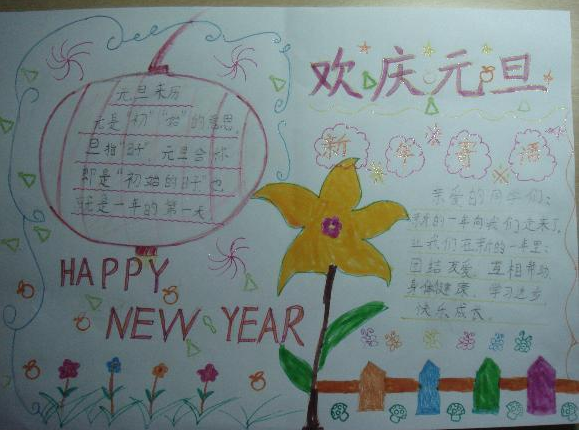 元旦来历
元是"初""始"的意思,
旦指"日子",元旦合称
即是"初始的日子"也
就是一年的第一天
HAPPY
NEW YEAR
欢庆元旦
新年寄语
亲爱的同学们:
新的一年向我们走来了,
让我们在新的一年里:
团结友爱、互相帮助
身体健康 学习进步
快乐成长